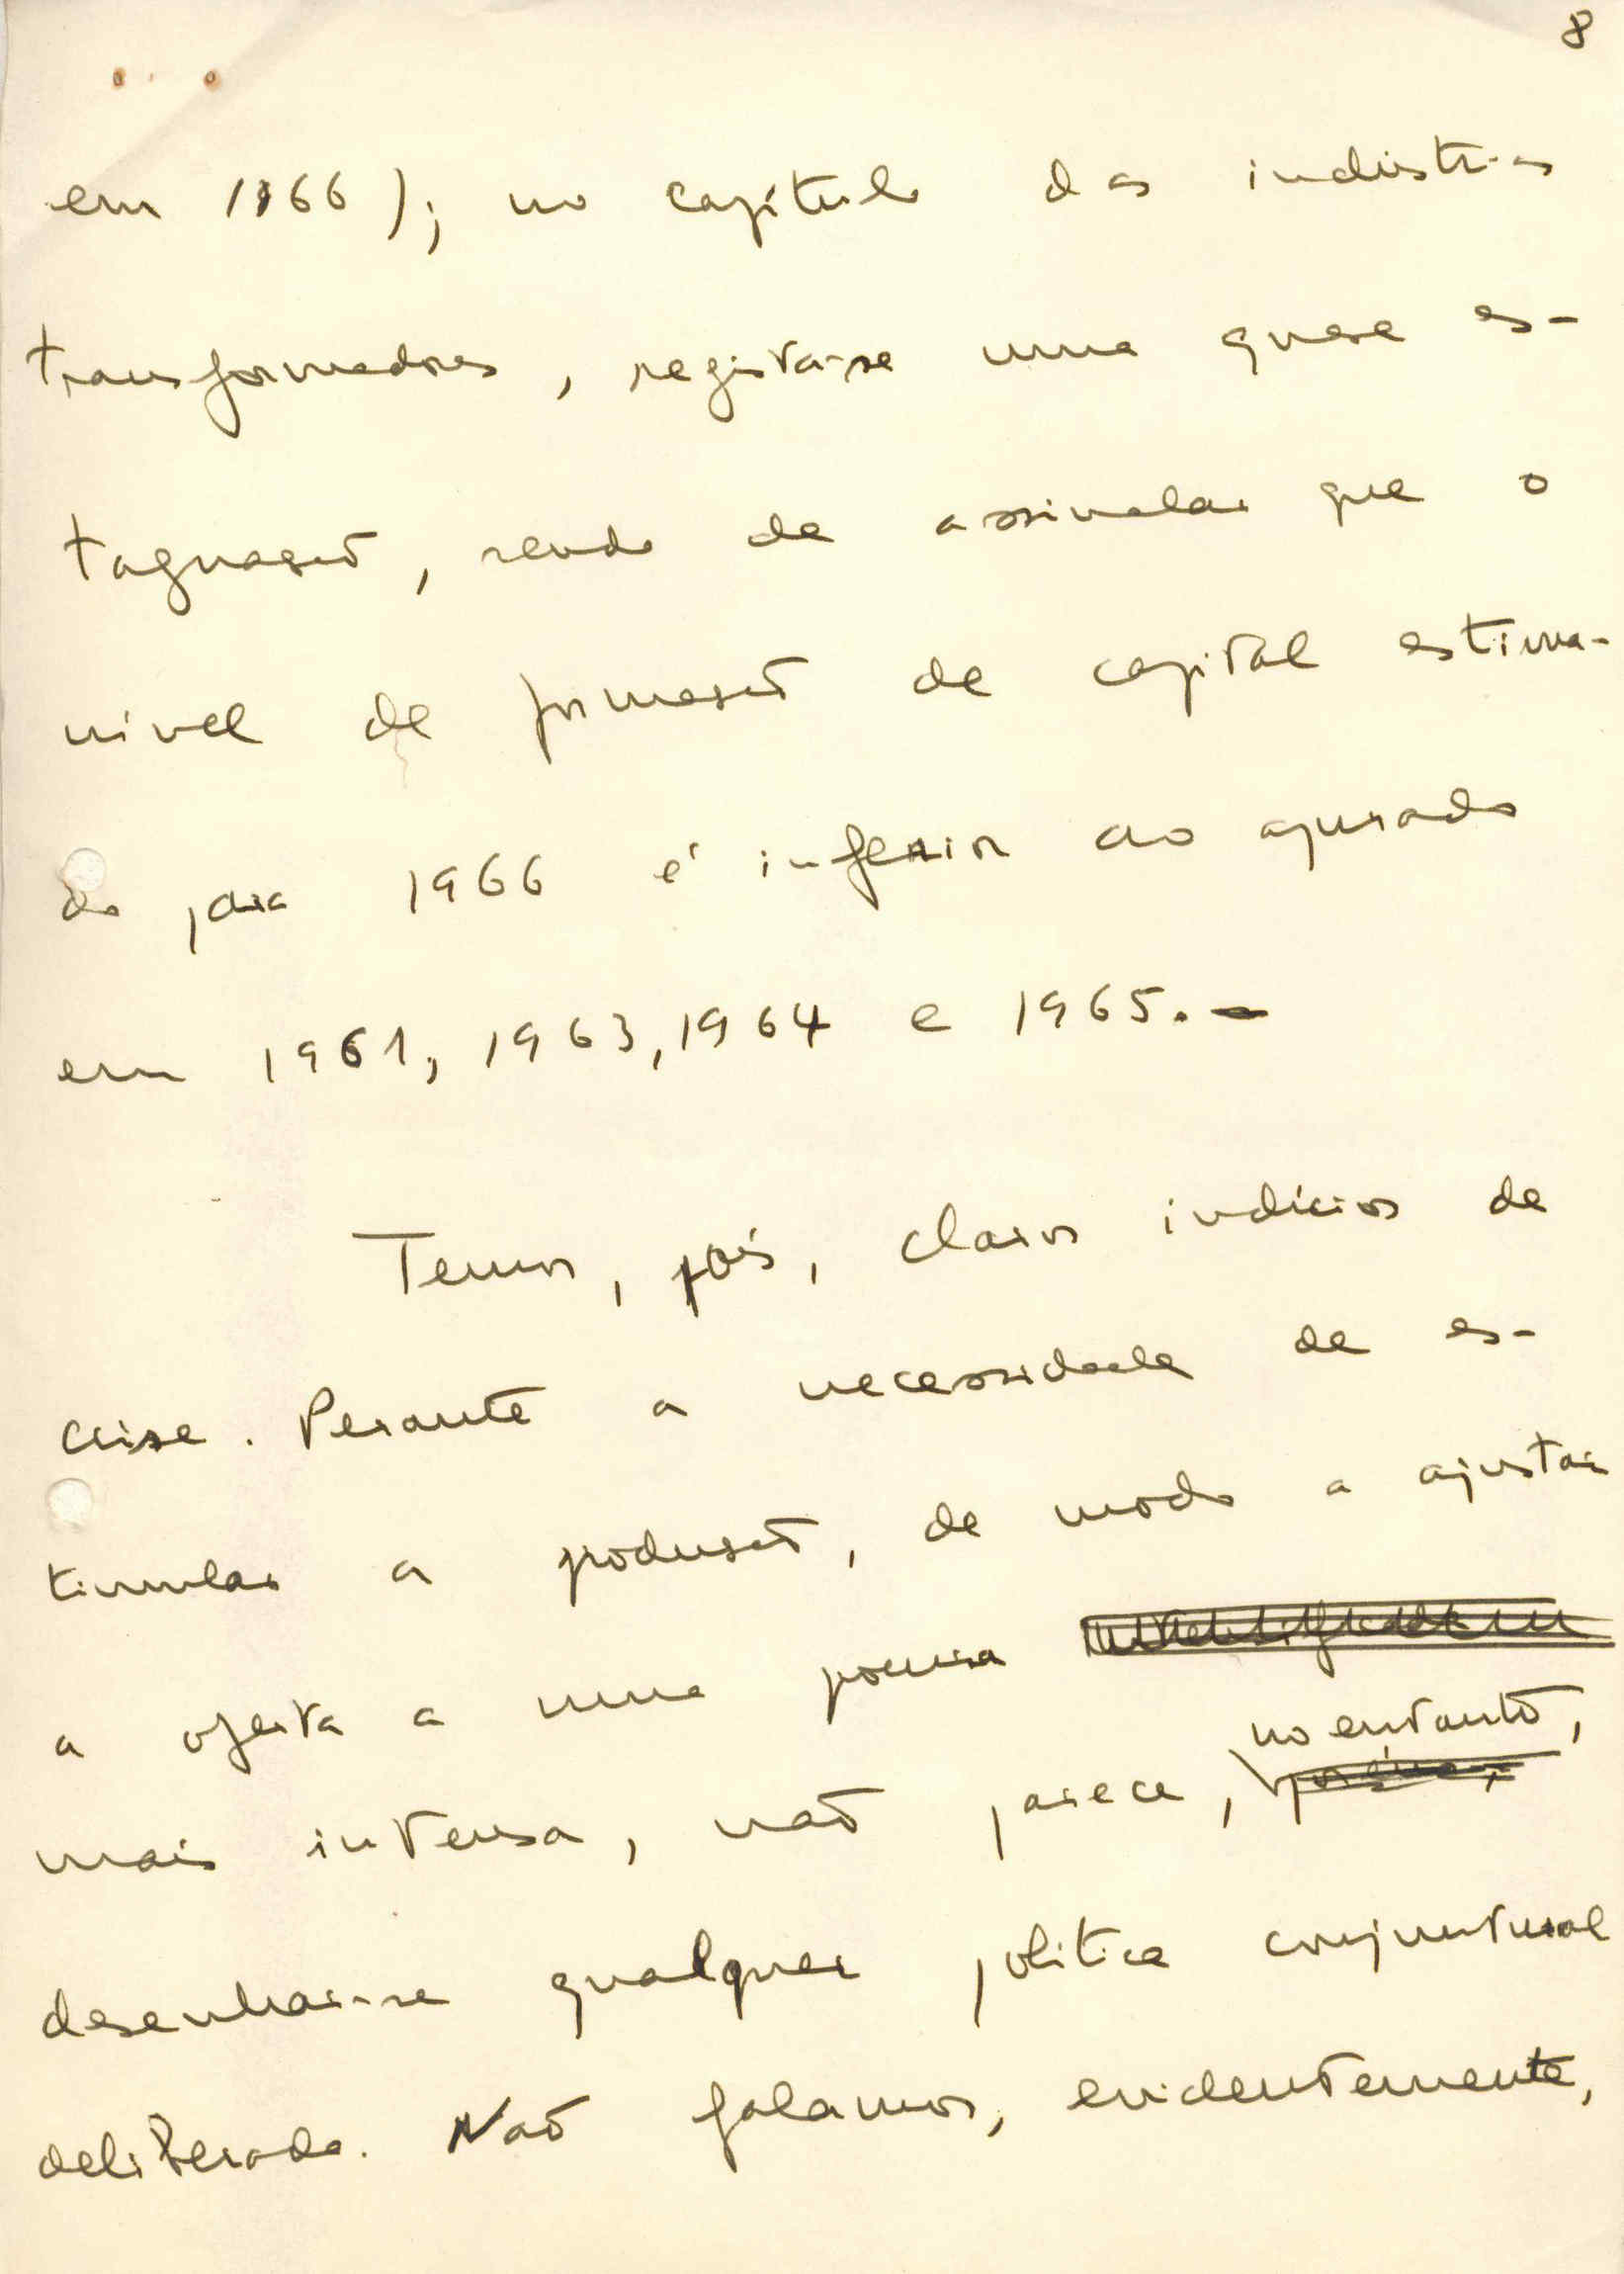 8
em 1966); no capítulo das indústrias
transformadoras, regista-se uma quase es-
tagnação, sendo de assinalar que o
nível de formação de capital estima-
do para 1966 é inferior ao apurado
em 1961, 1963, 1964 e 1965.-
Temos, pois, claros indícios de
crise. Perante a necessidade de es-
timular a produção, de modo a ajustar
a oferta a uma procura
no entanto,
mais intensa, não parece, porém,
desenhar-se qualquer política conjuntural
deliberada. Não falamos, evidentemente,